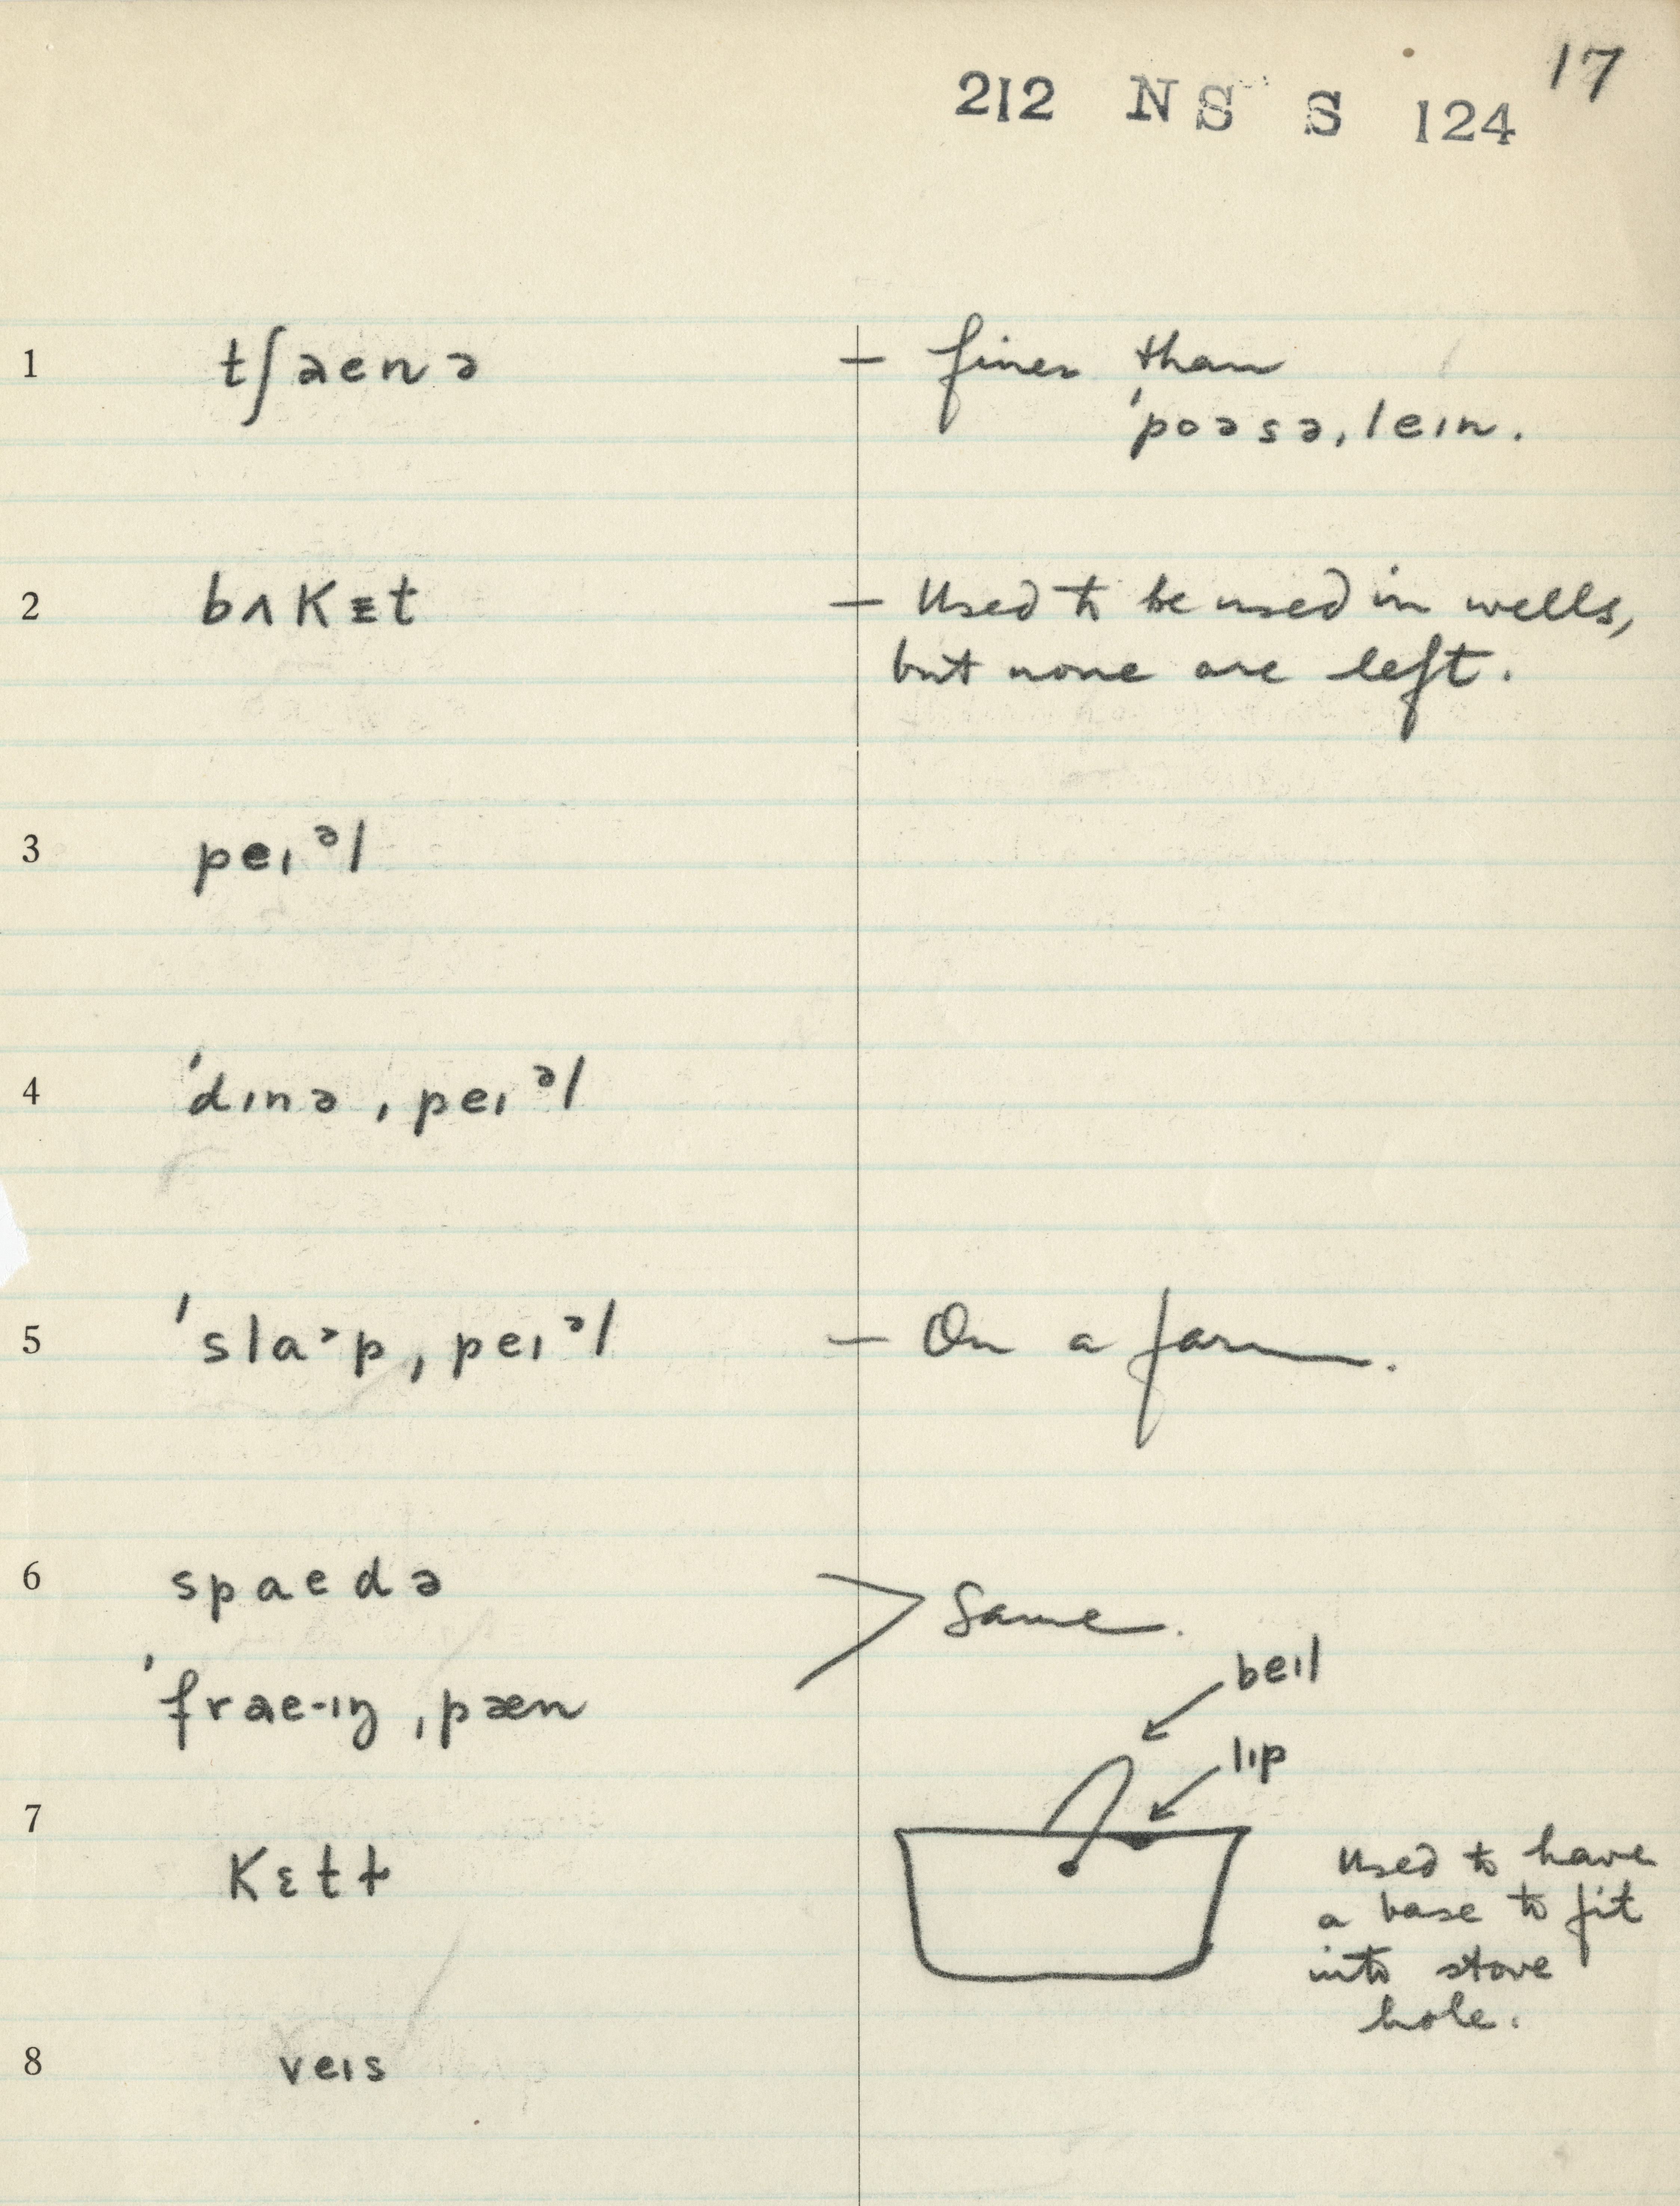 17
212 NS S 124
1 tʃaenə – finer than
ˈpoəsəˌlein.
2 bʌkᵻt – Used to be used in wells,
but none are left.
3 peɪᵊl
4 ˈdɪnəˌpeɪᵊl
5 ˈslaˑpˌpeɪᵊl – On a farm.
6 spaedə
Same.
ˈfrae-ɪŋˌpæn
beɪl
lɪp
7 kɛtɫ
Used to have
a base to fit
into stove
hole.
8 veɪs